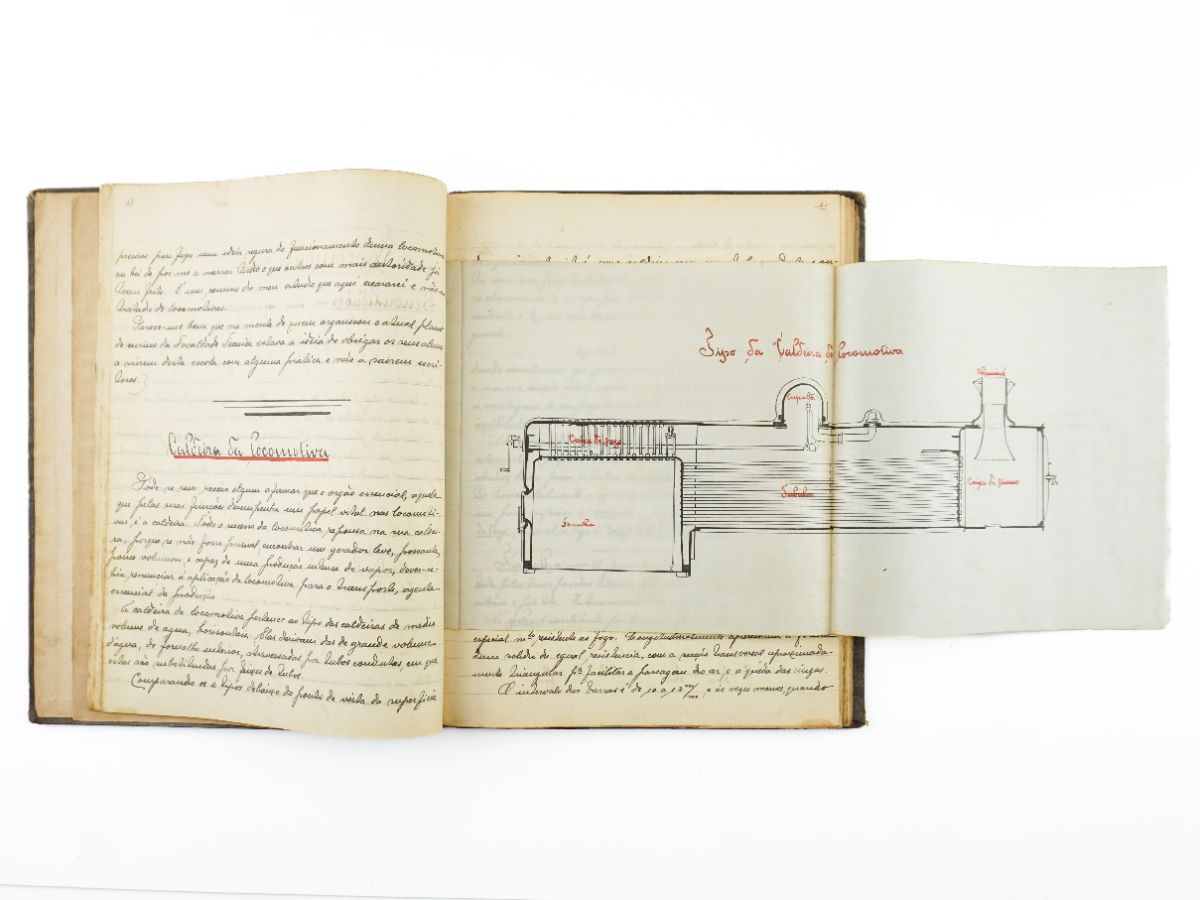 precisas para fazer uma ideia segura do funcionamento duma locomotiva,
ou hei de pôr-me a narrar tudo o que outros com mais autoridade já
teem feito. É um resumo do meu estudo que aqui exararei e não um
tratado de locomotivas.
Parece-me bem que na mente de quem organisou o atual plano
de ensino da Faculdade Tecnica estava a idéia de obrigar os seus alunos
a sairem desta escola com alguma pratica e não a sairem escri-
tores.
Caldeira da locomotiva
Póde-se sem receio algum afirmar que o orgão essencial, aquele
que pelas suas funcções desempenha um papel vital nas locomoti-
vas, é a caldeira. Todo o successo da locomotiva repousa na sua caldei-
ra, porque se não fosse possivel encontrar um gerador leve, possante,
pouco volumoso, e capaz de uma producção intensa de vapor, dever-se-
hia renunciar á aplicação da locomotiva para o transporte, agente
essencial da producção.
A caldeira da locomotiva pertence ao tipo das caldeiras de medio
volume de agua, horisontais. Elas derivam das de grande volume
d'agua, de fornalha interior, atravessadas por tubos conductores, em que
estes são substituidos por feixes de tubos.
Comparando os 2 tipos debaixo do ponto de vista da superficie
Tipo da "Caldeira de locomotiva
Chaminé
Cupula
Caixa de fogo
Tubular
Caixa de fumo
Fornalha
especial m.to resistente ao fogo. Longitudinalmente
dum solido de egual resistencia, com a secção transversal aproximada-
mente triangular p.a facilitar a passagem do ar, e a queda das cinzas.
O intervalo das barras é de 10 a 12 m/m, e ás vezes menos, quando